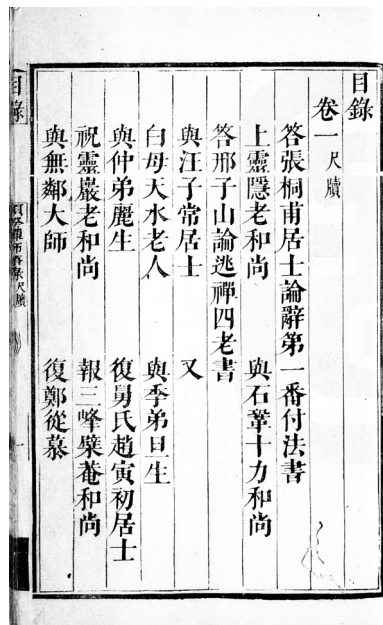 目錄
卷一 尺牘
答張桐甫居士論辭第一番付法書
上靈隱老和尚 與石鞏十力和尚
答邢子山論逃禪四老書
與汪子常居士 又
白母天水老人 與季弟旦生
與仲弟麗生 復舅氏趙寅初居士
祝靈巖老和尚 報三峰檗菴和尚
與無鄰大師 復鄭從慕
目錄